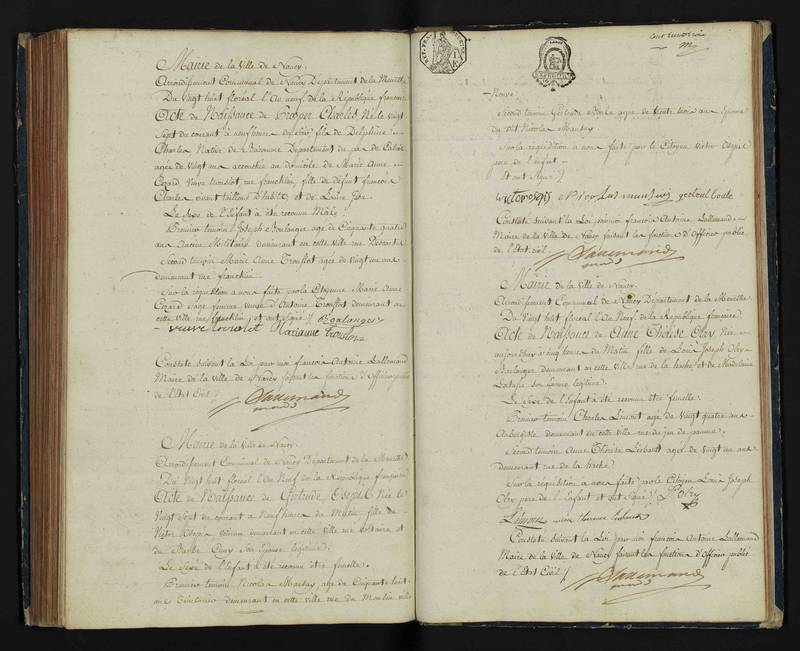 Mairie de la Ville de Nancy.
Arrondissement Communal de Nancy Département de la Meurthe
Du Vingt huit floréal l'An neuf de la République française
Acte de Naissance de Prosper Charles, Né le Vingt
Sept du courant à neuf heures du soir fils de Delphine
Charles Native de Département du pas de Calais
agée de vingt ans accouchée au domicile de Marie Anne
Gerard Veuve trouslot rue franklin, fille de défunt françois
Charles, vivant tailleur d'habits, et de Louise
Le Sexe de l'Enfant a été reconnu Mâle.
Premier temoin Joseph Boulanger agé de Cinquante quatre
ans Ancien Militaire demeurant en cette ville rue
Second temoin Marie Anne Trouslot agée de vingt un ans
demeurant rue franklin.
Sur la réquisition a nous faite par la Citoyenne Marie Anne
Gerard Sage femme veuve d'Antoine Trouslot demeurant en
cette ville rue franklin, et ont Signé. / Boulanger
veuve trouslot Marianne trouslot
Constaté suivant la Loi par moi françois Antoine Lallemand
Maire de la Ville de Nancy faisant les fonctions d'Officier public
de l'Etat Civil / Lallemand
Mairie de la Ville de Nancy.
Arrondissement Communal de Nancy Département de la Meurthe
Du Vingt huit floréal l'An Neuf de la République française
Acte de Naissance de Gertrude Oseph Née le
Vingt Sept du courant à Neuf heures du Matin fille de
Victor Oseph demeurant en cette ville rue voltaire et
de Barbe son Epouse légitime.
Le Sexe de l'Enfant a été reconnu être femelle.
Premier temoin Nicolas Marsay, agé de Cinquante huit
ans Teinturier demeurant en cette ville rue du Moulin
Neuve.
Second temoin Gertrude agée de trente trois ans Epouse
du dit Nicolas Marsay
Sur la réquisition a nous faite par le Citoyen Victor Oseph
père de l'enfant
et ont Signé /
victor oseph
Constaté suivant la Loi par moi françois Antoine Lallemand
Maire de la Ville de Nancy faisant les fonctions d'Officier public
de l'Etat civil. Lallemand
Mairie de la Ville de Nancy.
Arrondissement Communal de Nancy Département de la Meurthe
Du Vingt huit floréal l'An Neuf de la République françoise
Acte de Naissance de Anne Thérèse Olry, Née
aujourdhuy à cinq heures du Matin fille de Louis Joseph Olry
Boulanger demeurant en cette ville rue de la hache et de Madelaine
son Epouse légitime.
Le Sexe de l'Enfant a été reconnu être femelle.
Premier temoin Charles Limont agé de Vingt quatre ans
Aubergiste demeurant en cette ville rue du jeu de paume.
Second temoin Anne Thérèse Liébault agée de vingt un ans
demeurant rue de la hache
Sur la réquisition a nous faite par le Citoyen Louis Joseph
Olry père de l'Enfant et ont Signé / L Olry
Limont
Constaté suivant la Loi par moi françois Antoine Lallemand
Maire de la Ville de Nancy faisant les fonctions d'Officier public
de l'Etat Civil / Lallemand